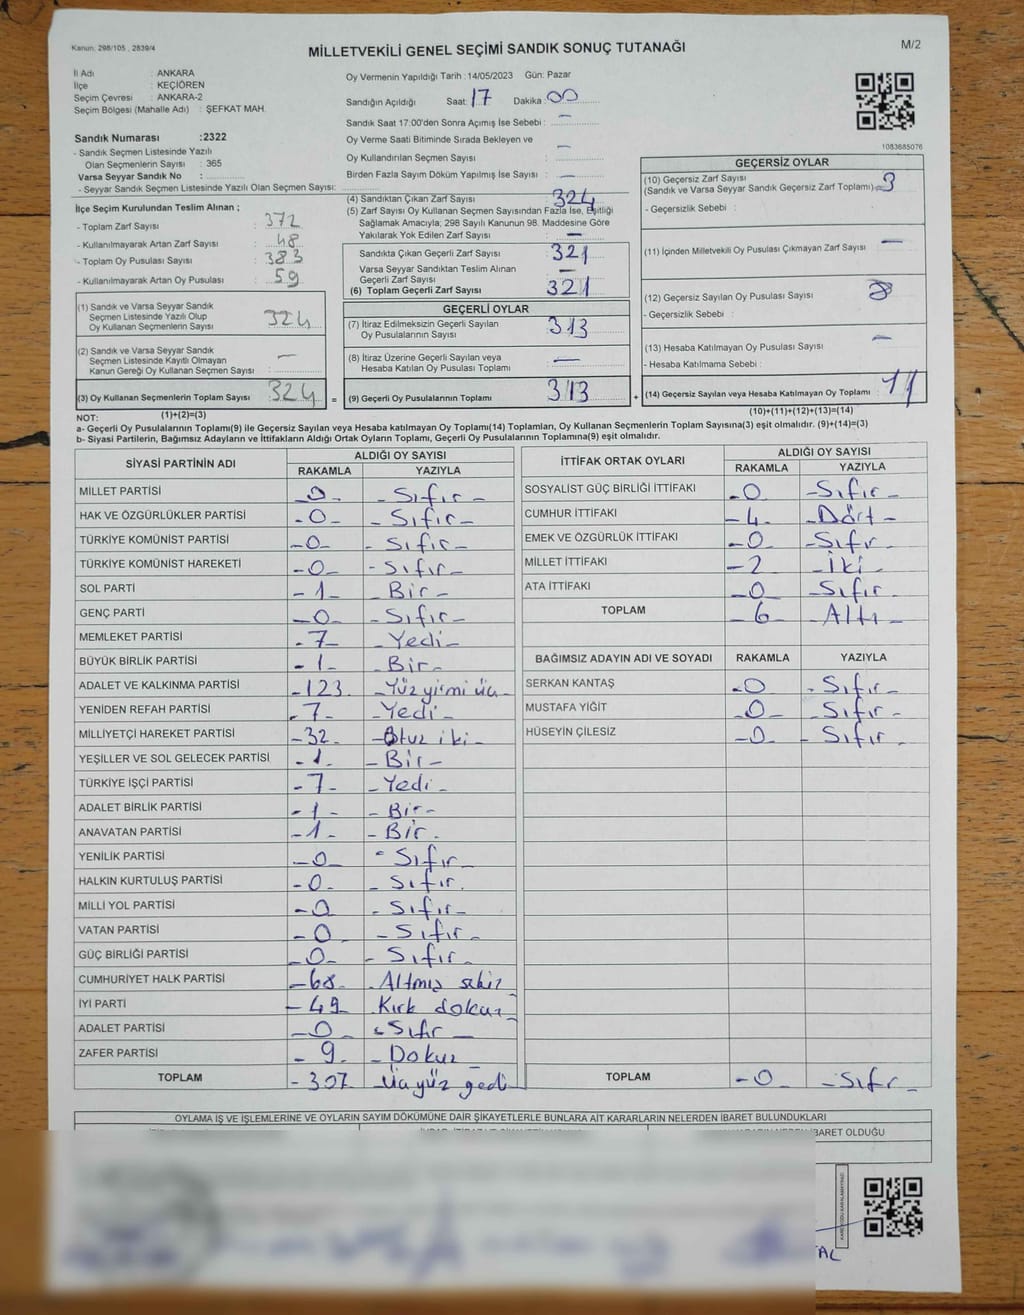 Kanun: 298/105 , 2839/4
MİLLETVEKİLİ GENEL SEÇİMİ SANDIK SONUÇ TUTANAĞI
M/2
İl Adı : ANKARA
İlçe : KEÇİÖREN
Seçim Çevresi : ANKARA-2
Seçim Bölgesi (Mahalle Adı) : ŞEFKAT MAH.
Sandık Numarası :2322
- Sandık Seçmen Listesinde Yazılı
Olan Seçmenlerin Sayısı : 365
Varsa Seyyar Sandık No :
- Seyyar Sandık Seçmen Listesinde Yazılı Olan Seçmen Sayısı:
Oy Vermenin Yapıldığı Tarih : 14/05/2023 Gün: Pazar
Sandığın Açıldığı Saat: 17 Dakika: 00
Sandık Saat 17:00'den Sonra Açımış İse Sebebi : —
Oy Verme Saati Bitiminde Sırada Bekleyen ve
Oy Kullandırılan Seçmen Sayısı : —
Birden Fazla Sayım Döküm Yapılmış İse Sayısı : —
1083685076
İlçe Seçim Kurulundan Teslim Alınan ;
- Toplam Zarf Sayısı : 372
- Kullanılmayarak Artan Zarf Sayısı : 48
- Toplam Oy Pusulası Sayısı : 383
- Kullanılmayarak Artan Oy Pusulası : 59
(1) Sandık ve Varsa Seyyar Sandık
Seçmen Listesinde Yazılı Olup
Oy Kullanan Seçmenlerin Sayısı : 324
(2) Sandık ve Varsa Seyyar Sandık
Seçmen Listesinde Kayıtlı Olmayan
Kanun Gereği Oy Kullanan Seçmen Sayısı : —
(3) Oy Kullanan Seçmenlerin Toplam Sayısı : 324 =
(1)+(2)=(3)
(4) Sandıktan Çıkan Zarf Sayısı : 324
(5) Zarf Sayısı Oy Kullanan Seçmen Sayısından Fazla İse, Eşitliği
Sağlamak Amacıyla; 298 Sayılı Kanunun 98. Maddesine Göre
Yakılarak Yok Edilen Zarf Sayısı : —
Sandıkta Çıkan Geçerli Zarf Sayısı : 321
Varsa Seyyar Sandıktan Teslim Alınan
Geçerli Zarf Sayısı : —
(6) Toplam Geçerli Zarf Sayısı : 321
GEÇERLİ OYLAR
(7) İtiraz Edilmeksizin Geçerli Sayılan
Oy Pusulalarının Sayısı : 313
(8) İtiraz Üzerine Geçerli Sayılan veya
Hesaba Katılan Oy Pusulası Toplamı : —
(9) Geçerli Oy Pusulalarının Toplamı : 313 +
GEÇERSİZ OYLAR
(10) Geçersiz Zarf Sayısı
(Sandık ve Varsa Seyyar Sandık Geçersiz Zarf Toplamı) : 3
- Geçersizlik Sebebi :
(11) İçinden Milletvekili Oy Pusulası Çıkmayan Zarf Sayısı : —
(12) Geçersiz Sayılan Oy Pusulası Sayısı : 8
- Geçersizlik Sebebi :
(13) Hesaba Katılmayan Oy Pusulası Sayısı : —
- Hesaba Katılmama Sebebi :
(14) Geçersiz Sayılan veya Hesaba Katılmayan Oy Toplamı : 11
(10)+(11)+(12)+(13)=(14)
NOT:
a- Geçerli Oy Pusulalarının Toplamı(9) ile Geçersiz Sayılan veya Hesaba katılmayan Oy Toplamı(14) Toplamları, Oy Kullanan Seçmenlerin Toplam Sayısına(3) eşit olmalıdır. (9)+(14)=(3)
b- Siyasi Partilerin, Bağımsız Adayların ve İttifakların Aldığı Ortak Oyların Toplamı, Geçerli Oy Pusulalarının Toplamına(9) eşit olmalıdır.
SİYASİ PARTİNİN ADI ALDIĞI OY SAYISI
RAKAMLA YAZIYLA
MİLLET PARTİSİ -0- -Sıfır-
HAK VE ÖZGÜRLÜKLER PARTİSİ -0- -Sıfır-
TÜRKİYE KOMÜNİST PARTİSİ -0- -Sıfır-
TÜRKİYE KOMÜNİST HAREKETİ -0- -Sıfır-
SOL PARTİ -1- -Bir-
GENÇ PARTİ -0- -Sıfır-
MEMLEKET PARTİSİ -7- -Yedi-
BÜYÜK BİRLİK PARTİSİ -1- -Bir-
ADALET VE KALKINMA PARTİSİ -123- -Yüz yirmi üç-
YENİDEN REFAH PARTİSİ -7- -Yedi-
MİLLİYETÇİ HAREKET PARTİSİ -32- -Otuz iki-
YEŞİLLER VE SOL GELECEK PARTİSİ -1- -Bir-
TÜRKİYE İŞÇİ PARTİSİ -7- -Yedi-
ADALET BİRLİK PARTİSİ -1- -Bir-
ANAVATAN PARTİSİ -1- -Bir-
YENİLİK PARTİSİ -0- -Sıfır-
HALKIN KURTULUŞ PARTİSİ -0- -Sıfır-
MİLLİ YOL PARTİSİ -0- -Sıfır-
VATAN PARTİSİ -0- -Sıfır-
GÜÇ BİRLİĞİ PARTİSİ -0- -Sıfır-
CUMHURİYET HALK PARTİSİ -68- -Altmış sekiz-
İYİ PARTİ -49- Kırk dokuz-
ADALET PARTİSİ -0- -Sıfır-
ZAFER PARTİSİ -9- -Dokuz-
TOPLAM -307- -Üçyüz yedi-
İTTİFAK ORTAK OYLARI ALDIĞI OY SAYISI
RAKAMLA YAZIYLA
SOSYALİST GÜÇ BİRLİĞİ İTTİFAKI -0- -Sıfır-
CUMHUR İTTİFAKI -4- -Dört-
EMEK VE ÖZGÜRLÜK İTTİFAKI -0- -Sıfır-
MİLLET İTTİFAKI -2- -İki-
ATA İTTİFAKI -0- -Sıfır-
TOPLAM -6- -Altı-
BAĞIMSIZ ADAYIN ADI VE SOYADI RAKAMLA YAZIYLA
SERKAN KANTAŞ -0- -Sıfır-
MUSTAFA YİĞİT -0- -Sıfır-
HÜSEYİN ÇİLESİZ -0- -Sıfır-
TOPLAM -0- -Sıfır-
OYLAMA İŞ VE İŞLEMLERİNE VE OYLARIN SAYIM DÖKÜMÜNE DAİR ŞİKAYETLERLE BUNLARA AİT KARARLARIN NELERDEN İBARET BULUNDUKLARI
İBARET OLDUĞU